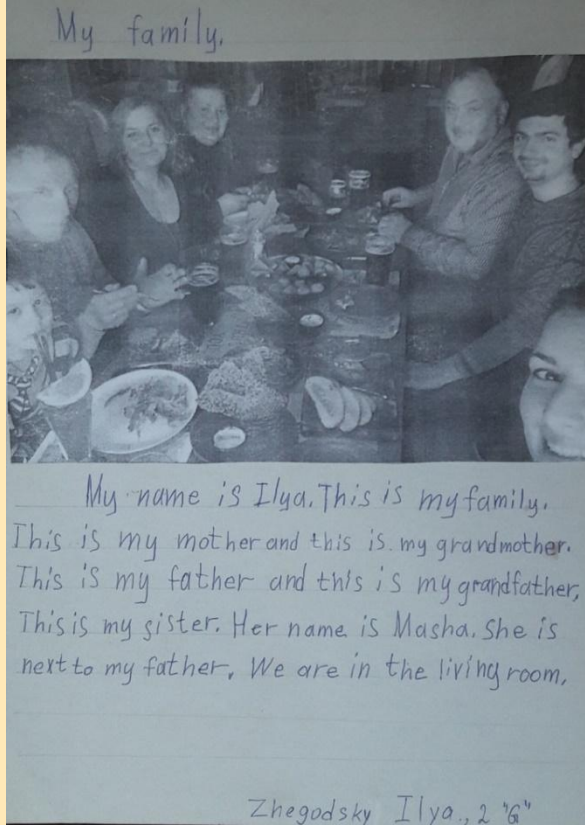 My family.
My name is Ilya. This is my family.
This is my mother and this is my grandmother.
This is my father and this is my grandfather,
This is my sister. Her name is Masha. She is
next to my father. We are in the living room,
Zhegodsky Ilya., 2 "G"